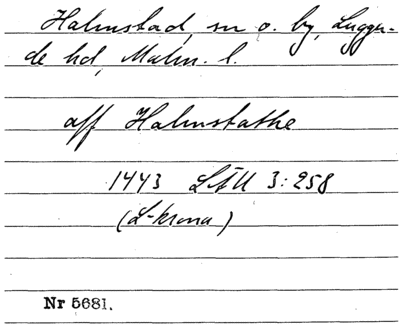 Halmstad, sn o. by, Luggu-
de hd, Malm. l.
aff Halmstathe
1443 LÄU 3:258
(L-krona)
Nr 5681.